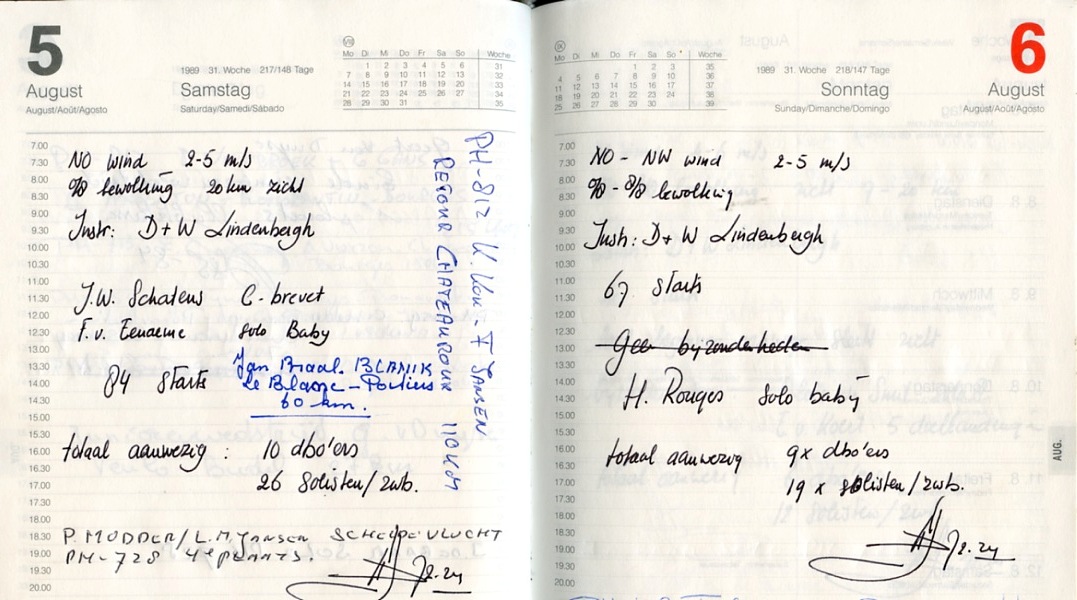 5
August
August/Août/Agosto
1989 31. Woche 217/148 Tage
Samstag
Saturday/Samedi/Sábado
VIII
Mo Di Mi Do Fr Sa So Woche
1 2 3 4 5 6 31
7 8 9 10 11 12 13 32
14 15 16 17 18 19 20 33
21 22 23 24 25 26 27 34
28 29 30 31 35
7.00
7.30 NO wind 2-5 m/s
8.00
8.30 bewolking 20 km zicht
9.00
9.30 Instr: D+W Lindenbergh
10.00
10.30
11.00
11.30 J.W. Schatens C-brevet
12.00
12.30 F.v. solo Baby
13.00
13.30 Jan BLANIK
14.00 84 starts Le Blanc - Poitiers
14.30 60 km.
15.00
15.30
16.00 totaal aanwezig : 10 dbo'ers
16.30
17.00 26 solisten/zwb.
17.30
18.00
18.30 P. MODDER/L.M. Jansen
19.00 PH-728 4e plaats.
19.30
20.00
PH-812 F JANSEN
RETOUR CHATEAUROUX 110 KM
6
August
August/Août/Agosto
1989 31. Woche 218/147 Tage
Sonntag
Sunday/Dimanche/Domingo
IX
Mo Di Mi Do Fr Sa So Woche
1 2 3 35
4 5 6 7 8 9 10 36
11 12 13 14 15 16 17 37
18 19 20 21 22 23 24 38
25 26 27 28 29 30 39
7.00
7.30 NO - NW wind 2-5 m/s
8.00
8.30 bewolking
9.00
9.30
10.00 Instr: D+W Lindenbergh
10.30
11.00
11.30 67 starts
12.00
12.30
13.00 Geen bijzonderheden
13.30
14.00
14.30 H. Rouges solo baby
15.00
15.30
16.00 totaal aanwezig 9x dbo'ers
16.30
17.00 19 x solisten/zwb.
17.30
18.00
18.30
19.00
19.30
20.00
AUG.